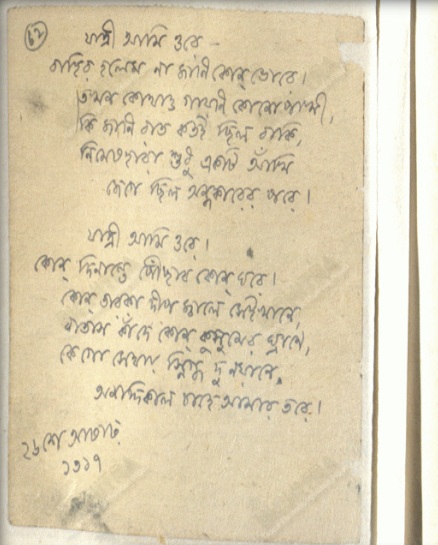 ৮২
যাত্রী আমি ওরে –
বাহির হলেম না জানি কোন্ ভোরে।
তখন কোথাও গায়নি কোনো পাখী,
কি জানি রাত কতই ছিল বাকি,
নিমেষহারা শুধু একটি আঁখি
জেগে ছিল অন্ধকারের পরে।
যাত্রী আমি ওরে।
কোন্ দিনান্তে পৌঁছাব কোন্ ঘরে।
কোন্ তারকা দীপ জ্বালে সেইখানে,
বাতাস কাঁদে কোন্ কুসুমের ঘ্রাণে,
কে গো সেথায় স্নিগ্ধ দু নয়ানে,
অনাদিকাল চাহে আমার তরে।
২৬শে আষাঢ়
১৩১৭